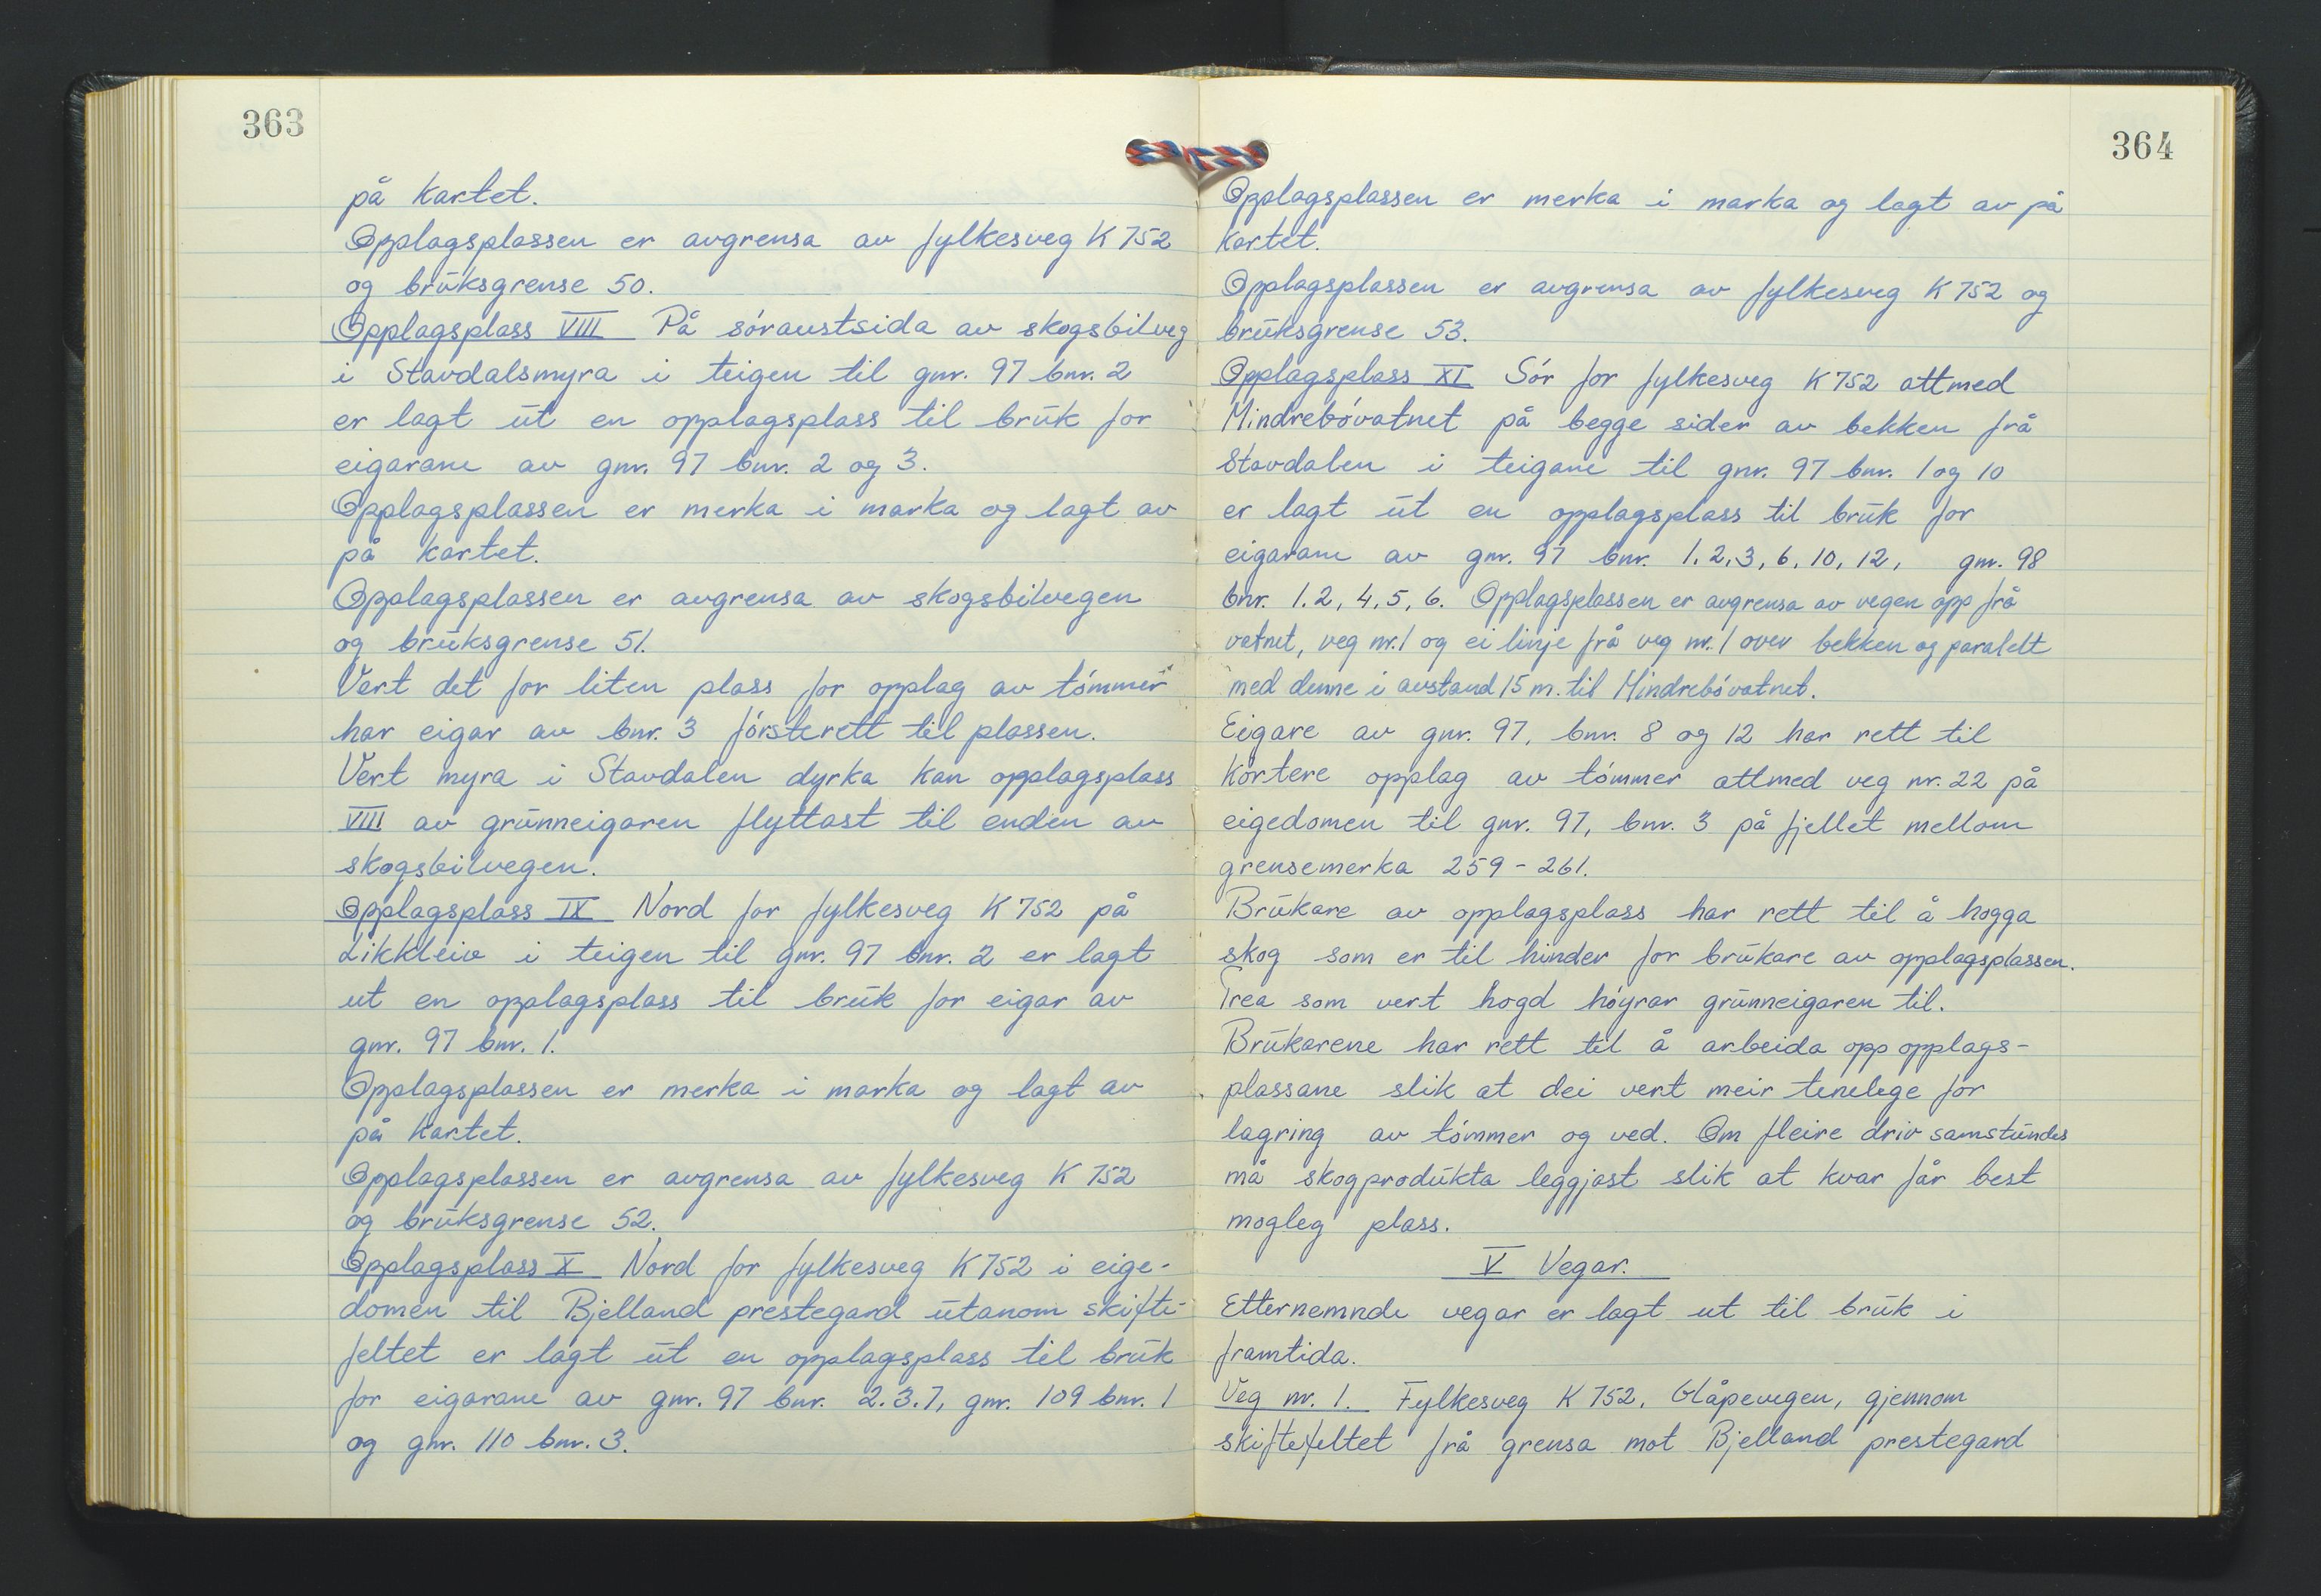 363
på kartet.
Opplagsplassen er avgrensa av fylkesveg K 752
og bruksgrense 50.
Opplagsplass VIII På søraustsida av skogsbilveg
i Stavdalsmyra i teigen til gnr. 97 bnr. 2
er lagt ut en opplagsplass til bruk for
eigarane av gnr. 97 bnr. 2 og 3.
Opplagsplassen er merka i marka og lagt av
på kartet.
Opplagsplassen er avgrensa av skogsbilvegen
og bruksgrense 51.
Vert det for liten plass for opplag av tømmer
har eigar av bnr. 3 førsterett til plassen.
Vert myra i Stavdalen dyrka kan opplagsplass
VIII av grunneigaren flyttast til enden av
skogsbilvegen.
Opplagsplass IX Nord for fylkesveg K 752 på
Likkleiv i teigen til gnr. 97 bnr. 2 er lagt
ut en opplagsplass til bruk for eigar av
gnr. 97 bnr. 1.
Opplagsplassen er merka i marka og lagt av
på kartet.
Opplagsplassen er avgrensa av fylkesveg K 752
og bruksgrense 52.
Opplagsplass X Nord for fylkesveg K 752 i eige-
domen til Bjelland prestegard utanom skifte-
feltet er lagt ut en opplagsplass til bruk
for eigarane av gnr. 97 bnr. 2.3.7, gnr. 109 bnr. 1
og gnr. 110 bnr. 3.
364
Opplagsplassen er merka i marka og lagt av på
kartet.
Opplagsplassen er avgrensa av fylkesveg K 752 og
bruksgrense 53.
Opplagsplass XI Sør for fylkesveg K 752 attmed
Mindrebøvatnet på begge sider av bekken frå
Stavdalen i teigane til gnr. 97 bnr. 1 og 10
er lagt ut en opplagsplass til bruk for
eigarane av gnr. 97 bnr. 1.2,3, 6, 10, 12, gnr. 98
bnr. 1.2, 4, 5, 6. Opplagsplassen er avgrensa av vegen opp frå
vatnet, veg nr. 1 og ei linje frå veg nr. 1 over bekken og paralelt
med denne i avstand 15 m. til Mindrebøvatnet.
Eigare av gnr. 97, bnr. 8 og 12 har rett til
kortere opplag av tømmer attmed veg nr. 22 på
eigedomen til gnr. 97, bnr. 3 på fjellet mellom
grensemerka 259 - 261.
Brukare av opplagsplass har rett til å hogga
skog som er til hinder for brukare av opplagsplassen.
Trea som vert hogd høyrar grunneigaren til.
Brukarene har rett til å arbeida opp opplags-
plassane slik at dei vert meir tenelege for
lagring av tømmer og ved. Om fleire driv samstundes
må skogprodukta leggjast slik at kvar får best
mogleg plass.
V Vegar.
Etternemnde vegar er lagt ut til bruk i
framtida.
Veg nr. 1. Fylkesveg K 752, Glåpevegen, gjennom
skiftefeltet frå grensa mot Bjelland prestegard